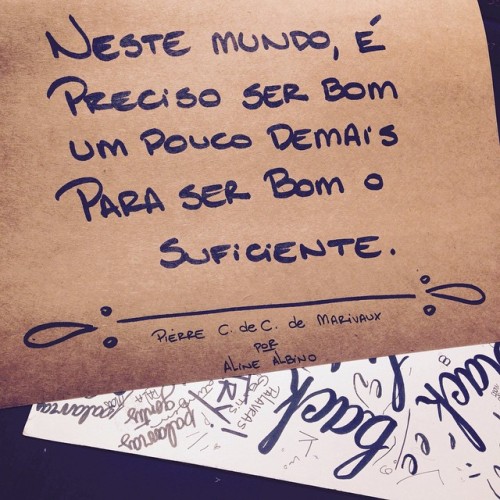 NESTE MUNDO, É
PRECISO SER BOM
UM POUCO DEMAIS
PARA SER BOM O
SUFICIENTE.
PIÈRRE C. de C. de MARIVAUX
POR
ALINE ALBINO
back
back
palavras
gentis
PALAVRAS
GENTIS
palavras